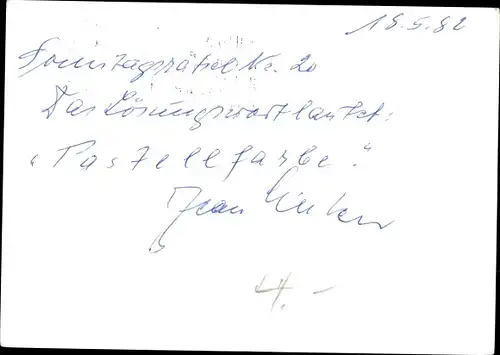 18.5.82
Sonntagsrätsel Nr. 20
Das Lösungswort lautet:
„Pastellfarbe."
Jean
4.-